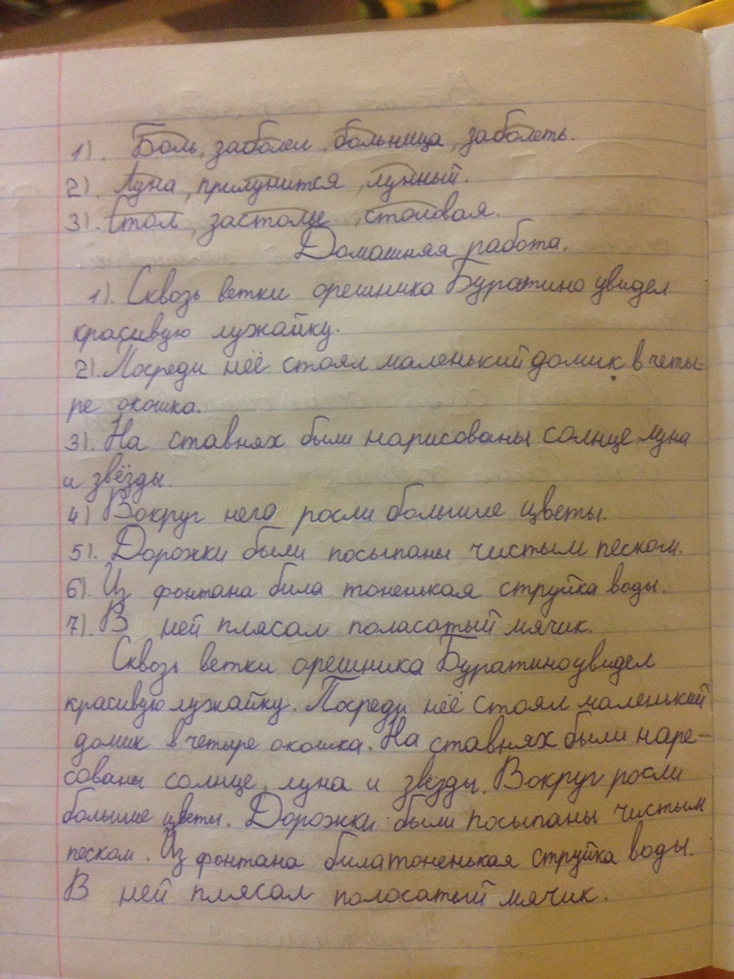 1). Боль, заболел, больница, заболеть.
2). Луна, прилунится, лунный.
3). Стол, застолье, столовая.
Домашняя работа.
1). Сквозь ветки орешника Буратино увидел
красивую лужайку.
2). Посреди неё стоял маленький домик в четы-
ре окошка.
3). На ставнях были нарисованы солнце луна
и звёзды.
4) Вокруг него росли большие цветы.
5). Дорожки были посыпаны чистым песком.
6). Из фонтана била тоненькая струйка воды.
7). В ней плясал поласатый мячик.
Сквозь ветки орешника Буратино увидел
красивую лужайку. Посреди неё стоял маленький
домик в четыре окошка. На ставнях были наре-
сованы солнце, луна и звёзды. Вокруг росли
большие цветы. Дорожки были посыпаны чистым
песком. Из фонтана била тоненькая струйка воды.
В ней плясал полосатый мячик.